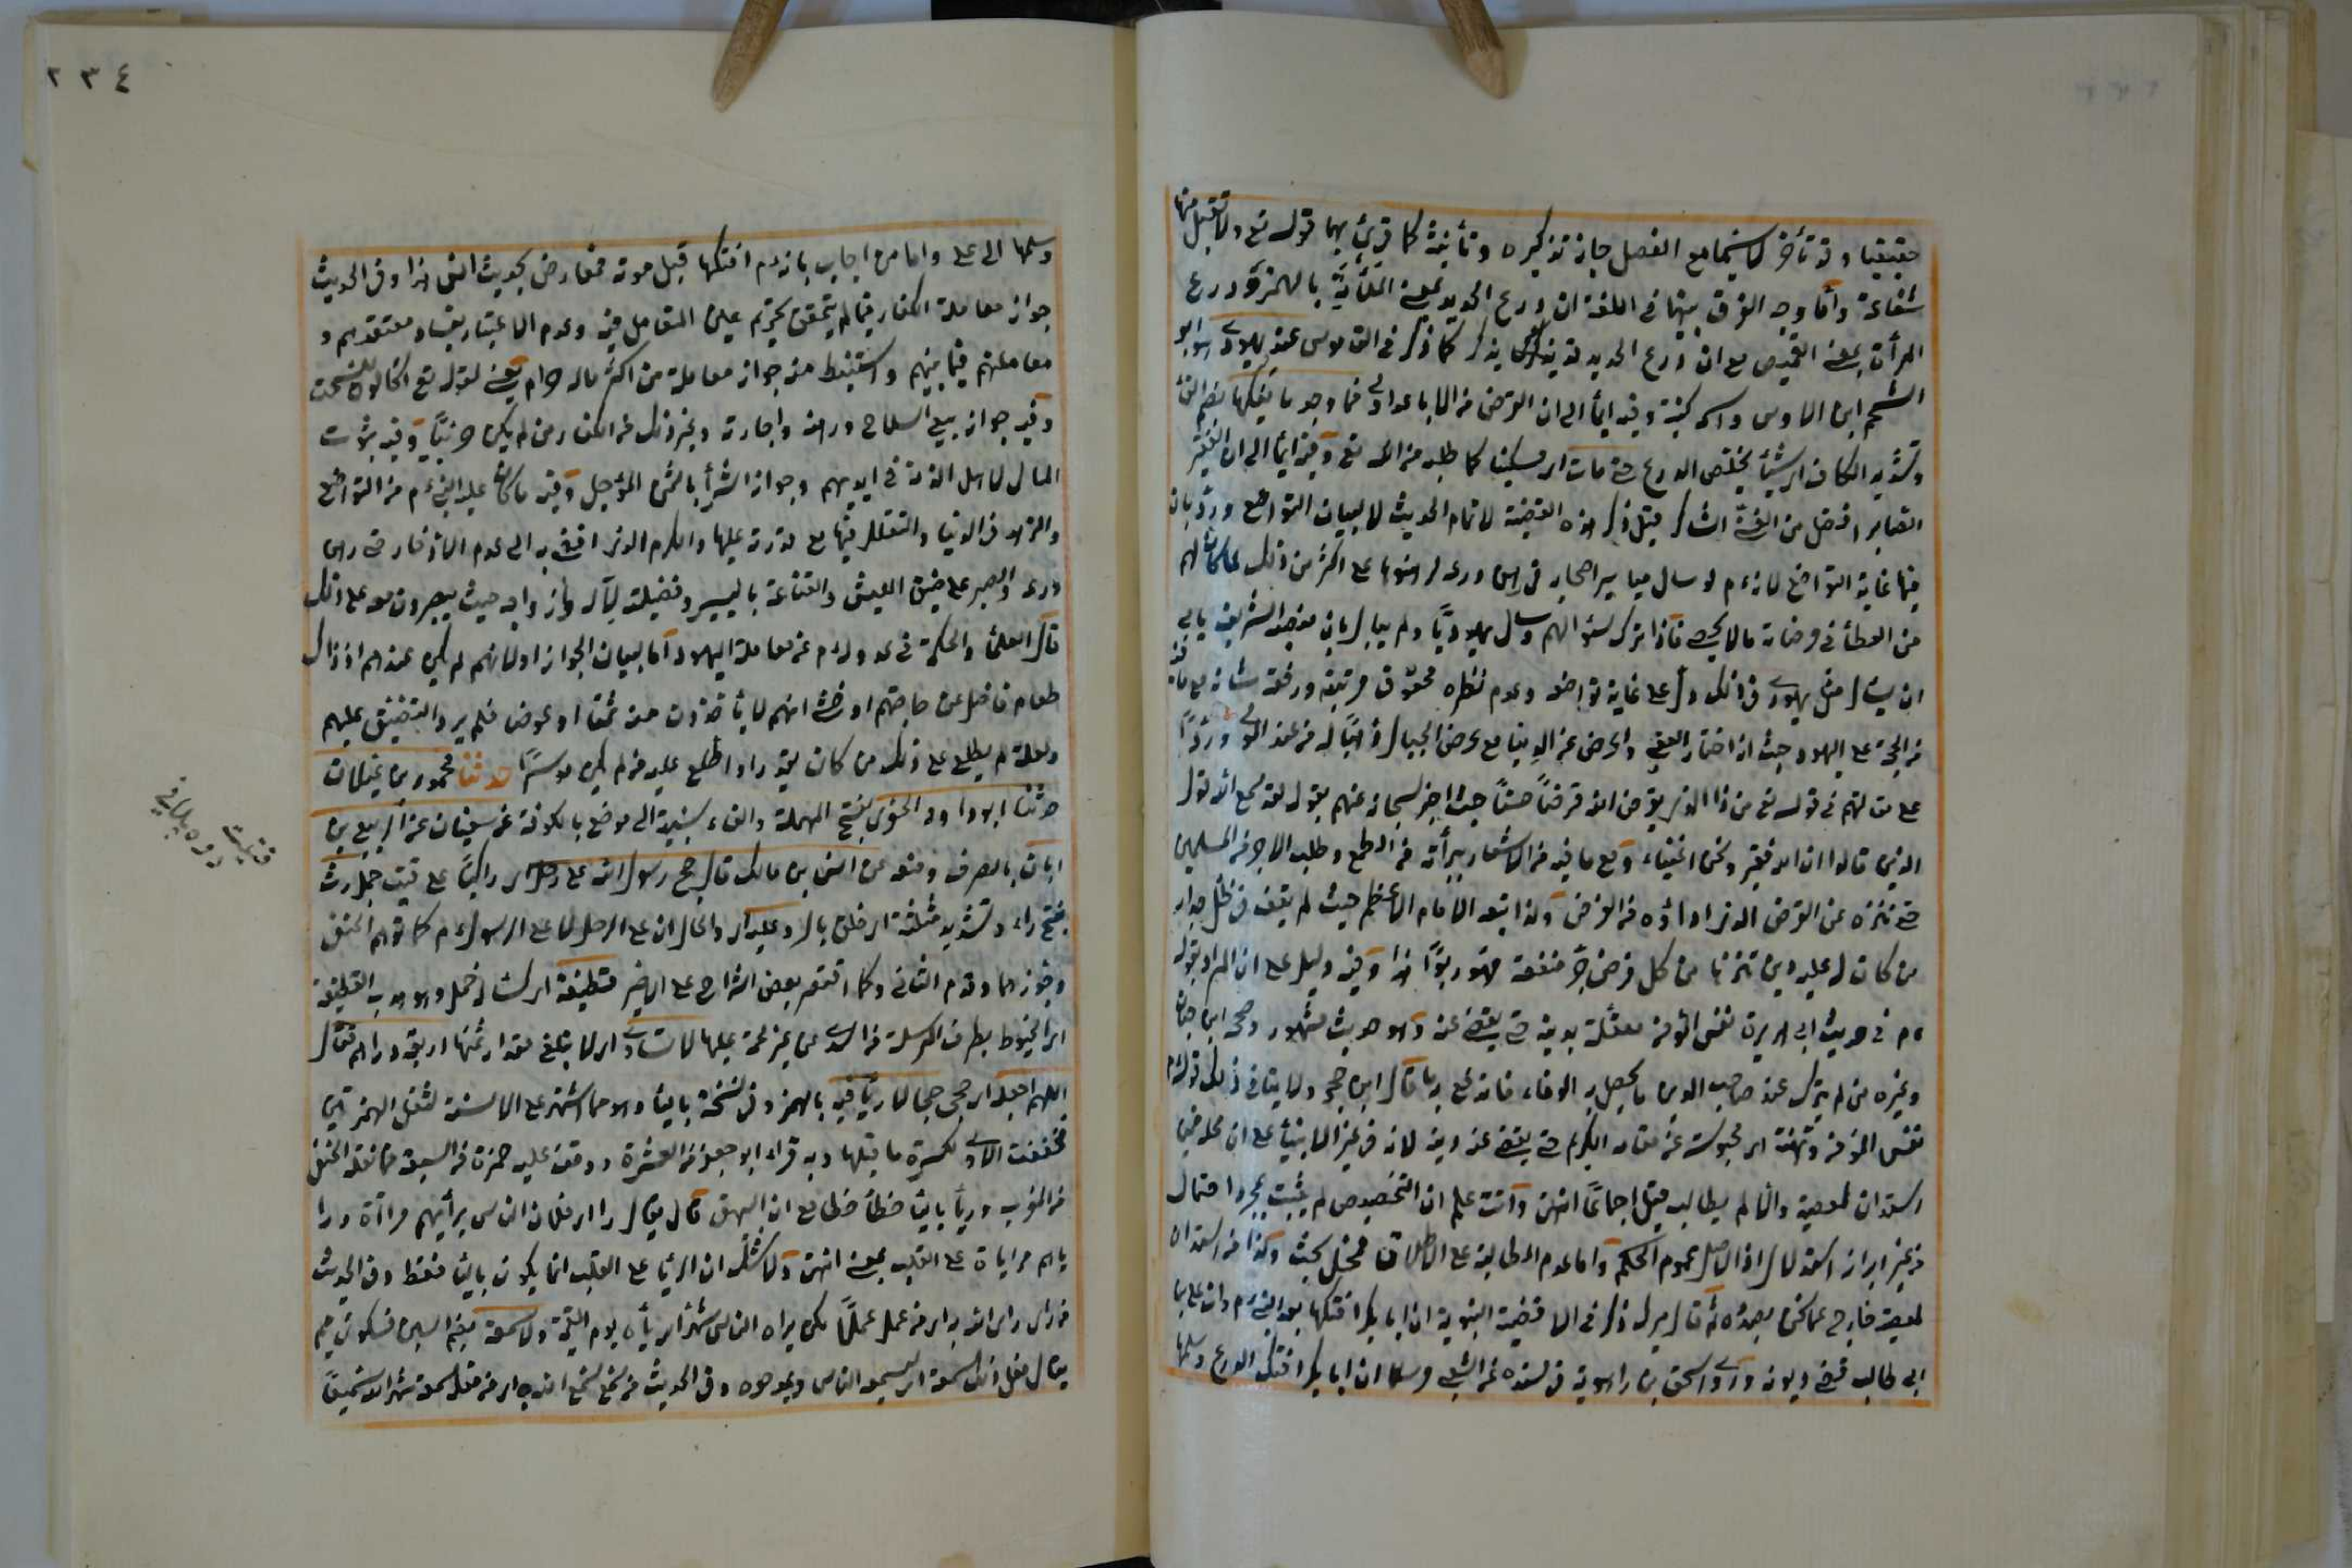 حقيقيا وقد تأخر لا سيما مع الفصل جاز تذكيره وتأنيثه كما قرئ بهما قوله تع ولا تقبل منها
شفاعة وأما وجه الفرق بينهما في اللغة ان درع الحديد بمعنى بالهمزة ودرع
المرأة بمعنى القميص مع ان درع الحديد قد يذكر كما ذكر في القاموس عند يهودي هو ابو
الشحم ابن الاوس واسمه كنيته وفيه ايماء الى ان القرض من الاباعد اولى فما وجد ما يفكها بضم الفاء
وتشديد الكاف اي شيئا يخلص الدرع حتى مات اي مسكينا كما طلبه من الله تع وفيه ايماء الى ان الفقير
الصابر افضل من الغني الشاكر قيل ذكر هذه القضية لاتمام الحديث لا لبيان التواضع ورد بان
فيها غاية التواضع لانه ءم لو سأل مياسير اصحابه في رهن درعه لرهنوها على اكثر من ذلك كان لهم
من العطاء في رضاه ما لا يحصى فاذا ترك سؤالهم وسأل يهوديا ولم يبال بان منصبه الشريف يأبى
ان يسأل مثل يهودي في ذلك دل على غاية تواضعه وعدم نظره لحقوق مرتبته ورفعة شانه مع ما فيه
من الحجة على اليهود حيث انه اختار العقبى واعرض عن الدنيا مع عرض الجبال ذهبا له من عند المولى وردا
على مقالتهم في قوله تع من ذا الذي يقرض الله قرضا حسنا حيث اخبر سبحانه عنهم بقوله لقد سمع الله قول
الذين قالوا ان الله فقير ونحن اغنياء ومع ما فيه من الاشعار ببرأته من الطمع وطلب الاجر من المسلمين
حتى تنزه عن القرض الذي اداؤه من الفرض ولذا تبعه الامام الاعظم حيث لم يقف في ظل جدار
من كان له عليه دين تنزها من كل قرض جر منفعة فهو ربوا هذا وفيه دليل على ان المراد بقوله
ءم في حديث ابي هريرة نفس المؤمن معلقة بدينه حتى يقضى عنه وهو حديث مشهور وصححه ابن حبان
وغيره من لم يترك عند صاحب الدين ما يحصل به الوفاء فانه ءم قال ابن حجر ولا ينافي ذلك قوله ءم
نفس المؤمن مرتهنة اي محبوسة عن مقامه الكريم حتى يقضى عنه دينه لانه في غير الانبياء على ان محله فيمن
استدان لمعصية والا لم يطالب قيل اجماعا انتهى وأنت تعلم ان التخصيص لم يثبت بمجرد احتمال
من غير ابراز استدلال اذ الاصل عموم الحكم واما عدم المطالبة على الاطلاق فمحل بحث وكذا من استدان
لمعصية خارج عما نحن بصدده ثم قال ميرك ذكر في الاقضية النبوية ان ابا بكر افتكها بعد النبي ءم وان علي بن
ابي طالب قضى ديونه وروى اسحق بن راهويه في مسنده عن الشعبي مرسلا ان ابا بكر افتك الدرع وسلمها
٢٣٤
وسلمها الى علي واما من اجاب بانه ءم افتكها قبل موته فمعارض بحديث انس هذا وفي الحديث
جواز معاملة الكفار فيما لم يتحقق تحريم عين المتعامل فيه وعدم الاعتبار بفساد معتقدهم و
معاملتهم فيما بينهم واستنبط منه جواز معاملة من اكثر ماله حرام يعني لقوله تع اكالون للسحت
وفيه جواز بيع السلاح ورهنه واجارته وغير ذلك من الكفار من لم يكن حربيا وفيه ثبوت
المال لاهل الذمة في ايديهم وجواز الشراء بالثمن المؤجل وفيه ما كان عليه النبي ءم من التواضع
والزهد في الدنيا والتقلل فيها مع قدرته عليها والكرم الذي افضى به الى عدم الادخار حتى رهن
درعه والصبر على ضيق العيش والقناعة باليسير وفضيلة لآله وازواجه حيث يصبرون معه على ذلك
قال العلماء والحكمة في عدوله ءم عن معاملة اليهود اما لبيان الجواز او لانهم لم يكن عندهم اذ ذاك
طعام فاضل عن حاجتهم او خشي انهم لا يأخذون منه ثمنا او عوض فلم يرد التضييق عليهم
ولعله لم يطلع على ذلك من كان يقدر او اطلع عليه من لم يكن موسرا حدثنا محمود بن غيلان
حدثنا ابو داود الحفري بفتح المهملة والفاء نسبة الى موضع بالكوفة عن سفيان عن الربيع بن
ابان بالصرف ومنعه عن انس بن مالك قال حج رسول الله على رحل اي راكبا على قتب جمل رث
بفتح راء وتشديد مثلثة اي خلق بال وعليه اي والحال ان على الرحل لا على الرسول ءم كما توهم الحنفي
وجوزهما وقدم الثاني وكما اقتصر بعض الشراح على الاخير قطيفة اي كساء له خمل وهو هدب القطيفة
اي الخيوط بطرف المرسلة من السدي من غير لحمة عليها لا تساوي اي لا تبلغ مقدار ثمنها اربعة دراهم فقال
اللهم اجعله اي حجي حجا لا رياء فيه بالهمز وفي نسخة بالياء وهو مما اشتهر على الالسنة لثقل الهمزتين
فخففت الاولى لكسرة ما قبلها وبه قرأ ابو جعفر من العشرة ووقف عليه حمزة من السبعة فما نقله الحنفي
من المغرب ورياء بالياء خطأ خطأ مع ان المهمة قال يقال راأى فلان الناس يرائيهم مراآة ورا
ياهم مراياة على القلب بمعنى انتهى ولا شك ان الرياء على القلب انما يكون بالياء فقط وفي الحديث
من رأى رأى الله به اي من عمل عملا لكن يراه الناس شهر الله رياءه يوم القيمة ولا سمعة بضم السين فسكون ميم
يقال فعل ذلك سمعة اي ليسمعه الناس ويمدحوه وفي الحديث من سمع سمع الله به اي من فعله سمعة شهره الله تسميعا